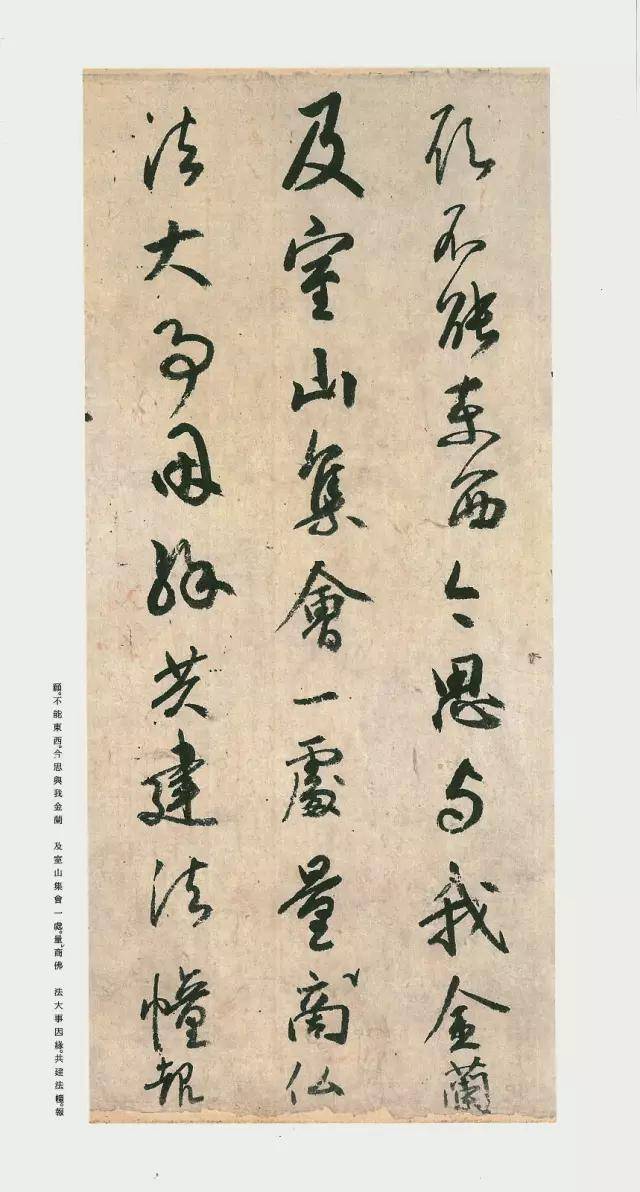 顧不能東西今思与我金蘭
及室山集會一處量商仏
法大事因緣共建法幢報
願。不能東西。今思與我金蘭　及室山集會一處。量商佛　法大事因緣。共建法幢。報